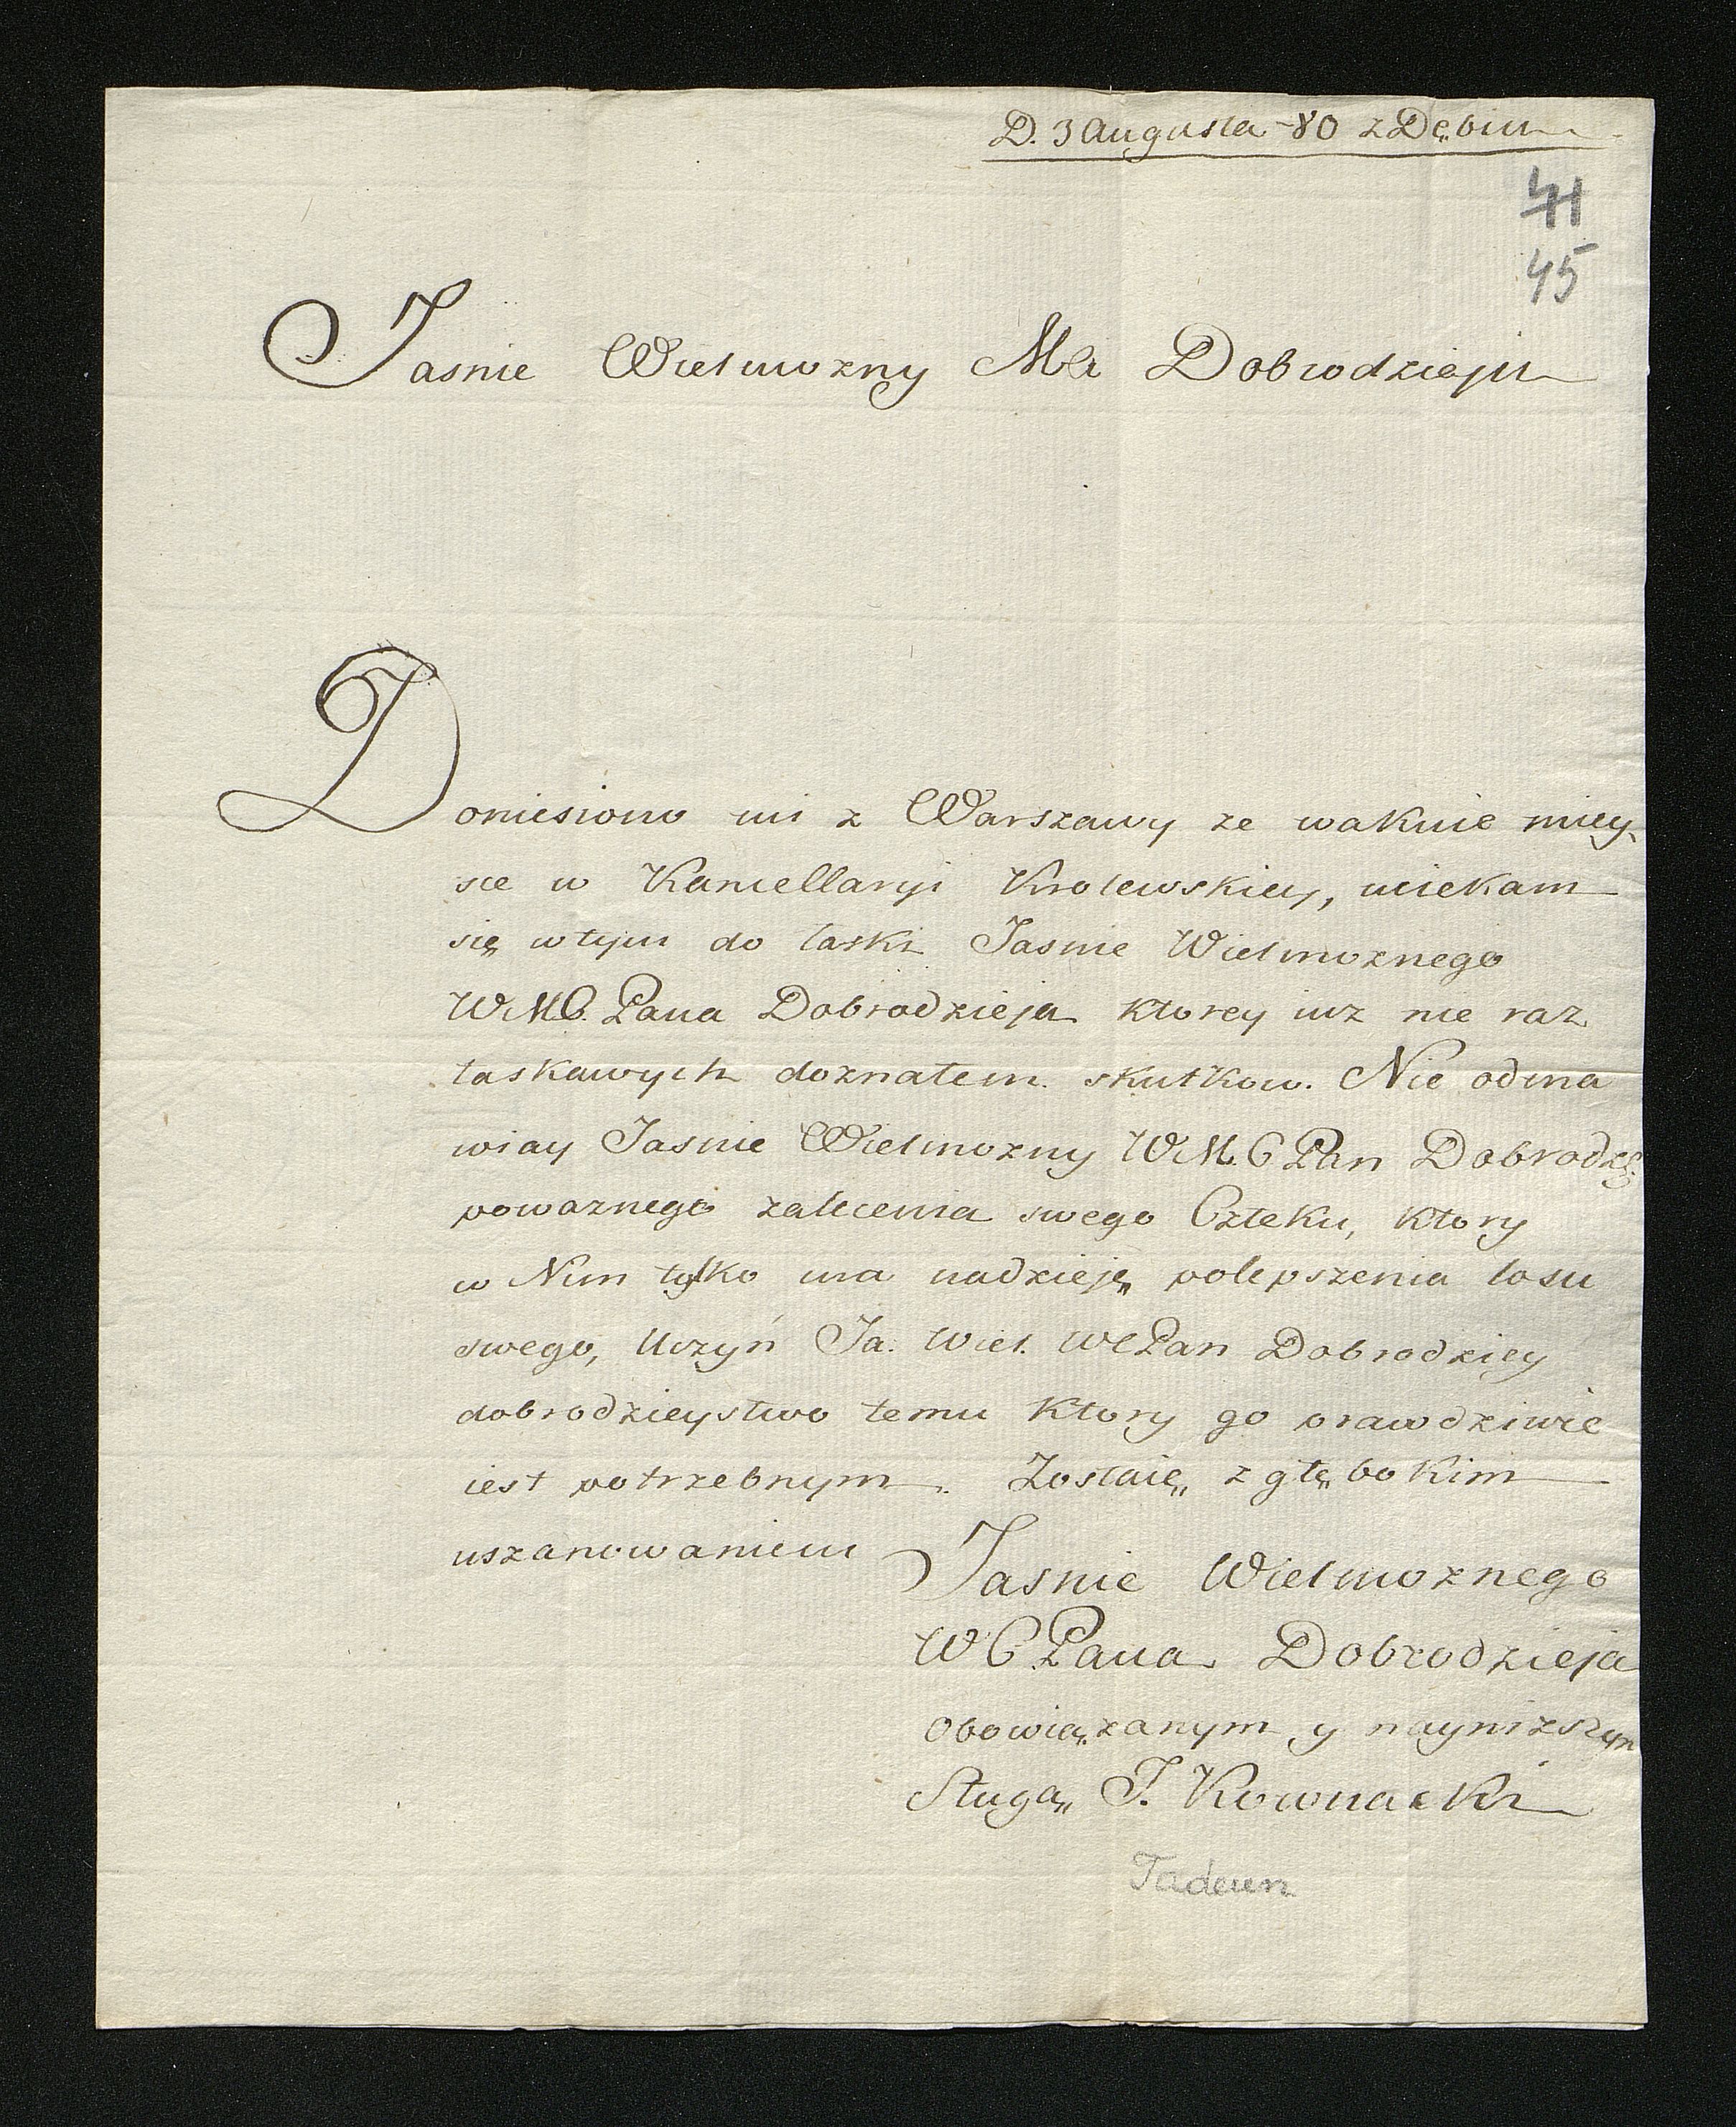 D. 3 Augusta -80 z Dębiu
41
45
Jasnie Wielmozny Mci Dobrodzieju
Doniesiono mi z Warszawy ze wakuie miey-
sce w Kancellaryi Krolewskiey, uciekam
się w tym do łaski Jasnie Wielmoznego
WMC. Pana Dobrodzieja ktorey iuz nie raz
łaskawych doznałem skutkow. Nie odma
wiay Jasnie Wielmozny WMC Pan Dobrodz:
powaznego zalecenia swego Człeku, ktory
w Nim tylko ma nadzieję polepszenia losu
swego, Uczyń Ja. Wiel. WC Pan Dobrodziey
dobrodzieystwo temu ktory go prawdziwie
iest potrzebnym. Zostaię z głębokim
uszanowaniem
Jasnie Wielmoznego
WC Pana Dobrodzieja
Obowiązanym y nayniższym
Sługą T. Kownacki
Tadeusz